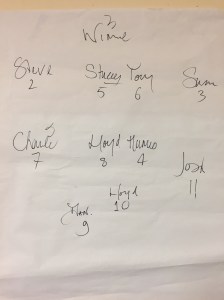 Steve Stacey Tony Susan
2 5 6 3
Charlie Lloyd
7 8 4
Josh
11
Lloyd
10
9